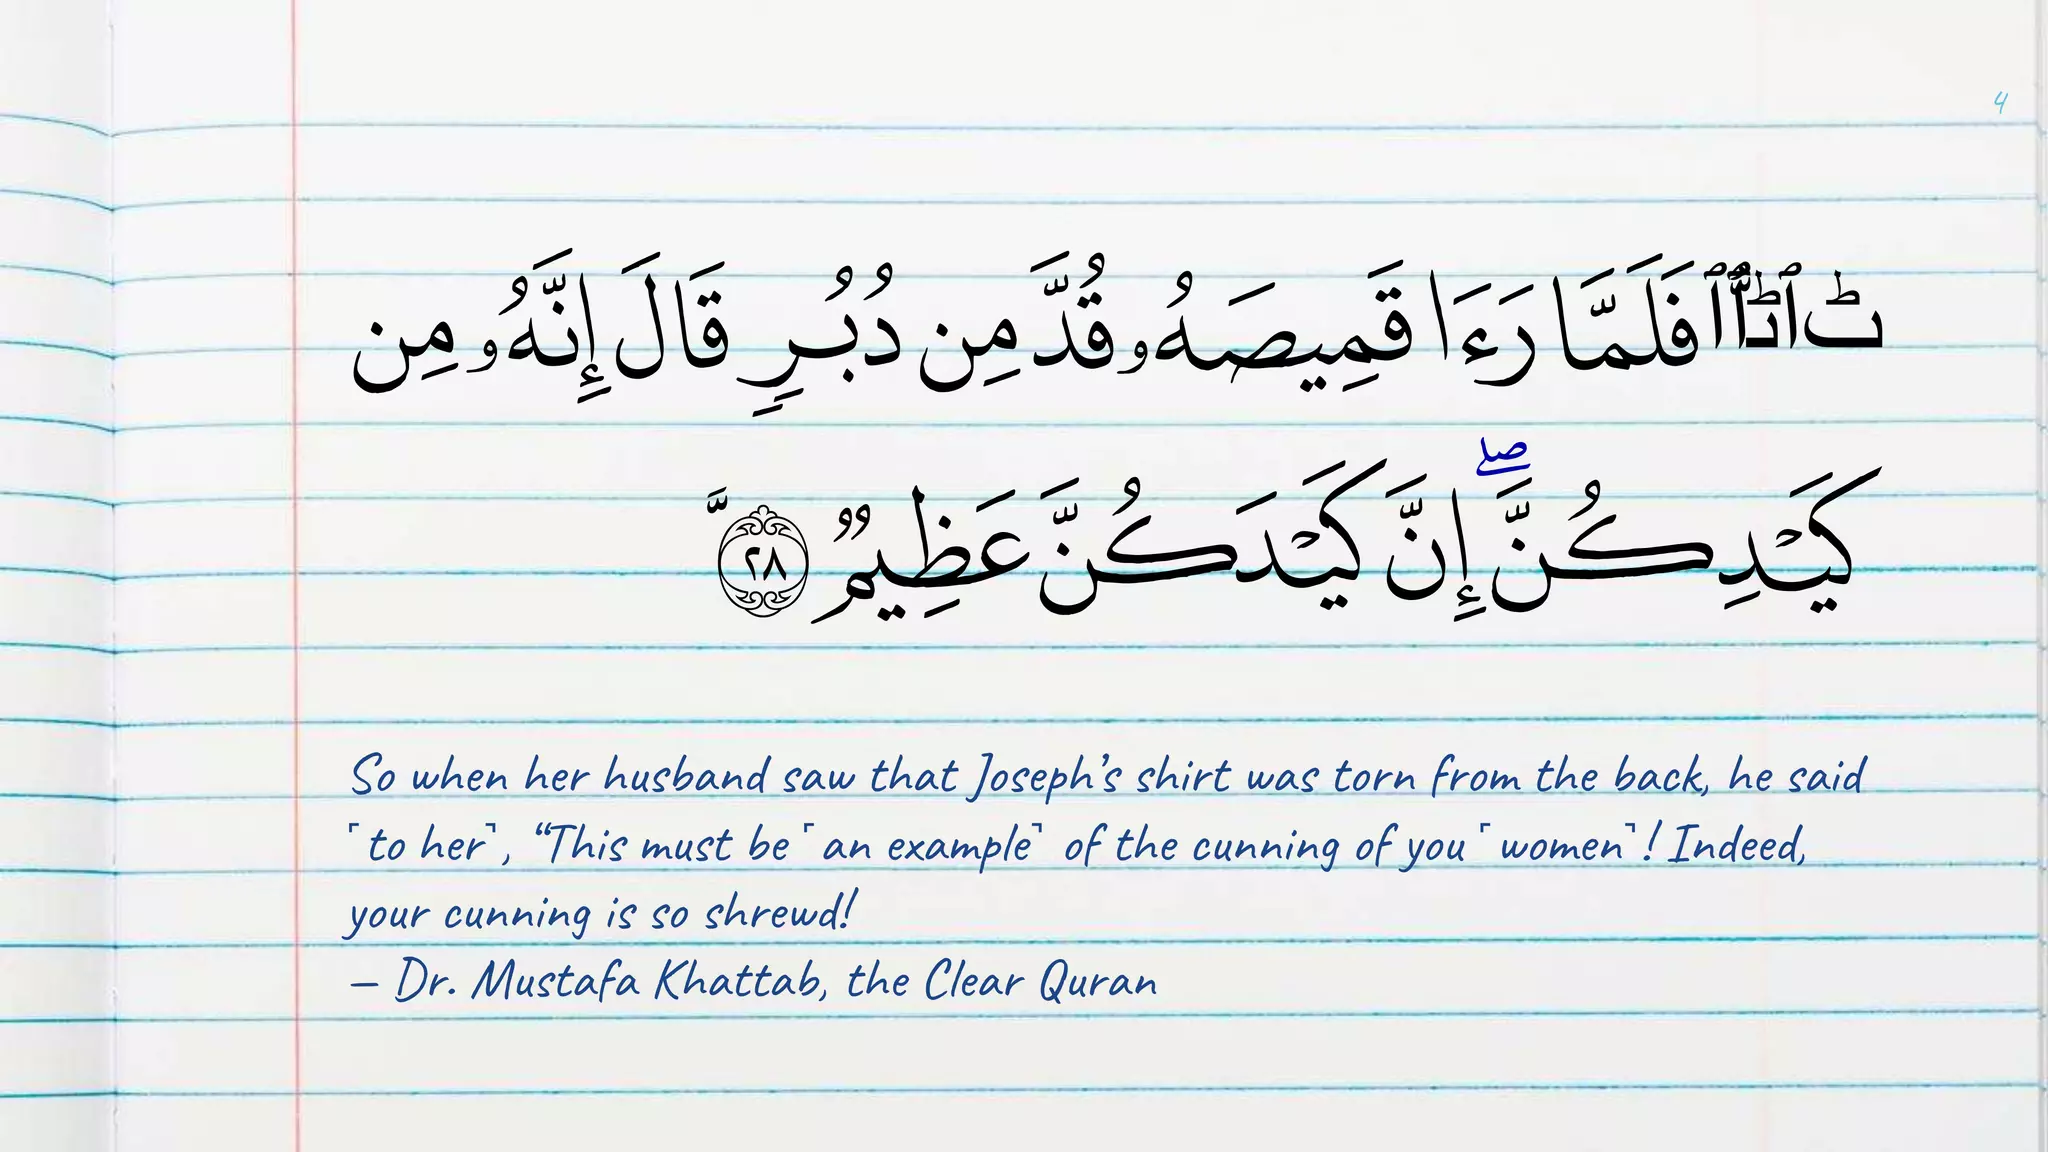 4
فَلَمَّا رَءَا قَمِيصَهُۥ قُدَّ مِن دُبُرٍ قَالَ إِنَّهُۥ مِن
كَيْدِكُنَّ ۖ إِنَّ كَيْدَكُنَّ عَظِيمٌ ٢٨
So when her husband saw that Joseph’s shirt was torn from the back, he said
˹to her˺, “This must be ˹an example˺ of the cunning of you ˹women˺! Indeed,
your cunning is so shrewd!
— Dr. Mustafa Khattab, the Clear Quran